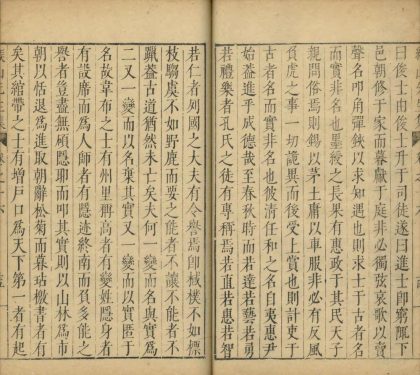 曰俊士由俊士升于司徒遂曰進士即窮陬下
邑朝修于家而暮獻于庭非必獨弦哀歌以賣
聲名叩角彈鋏以求知遇也則求士于古者名
而實非名也墨綬之長果有惠政于其民天子
親問俗焉則錫以茅土庸以車服非必有反風
負虎之事一切詭異而後受上賞也則計吏于
古者名而實非名也彼清任和之名自夷惠尹
始蓋進乎成德哉至春秋時而若達若藝若勇
若禮樂者孔氏之徒有專稱焉若直若惠若智
若仁者列國之大夫有令譽焉卽棫樸不如標
枝騶虞不如野鹿而要之能者不讓不能者不
躐蓋古道猶然未亡矣夫何一變而名與實爲
二又一變而以名棄其實又一變而以實匿于
名故韋布之士有州里稱高者有變姓隱身者
有設席而爲人師者有隱迹終南而負多能之
譽者豈盡無碩隱耶而叩其實則以山林爲市
朝以恬退爲進取朝辭松菊而暮玷檄書者有
矣其綰帶之士有增戶口爲天下第一者有起